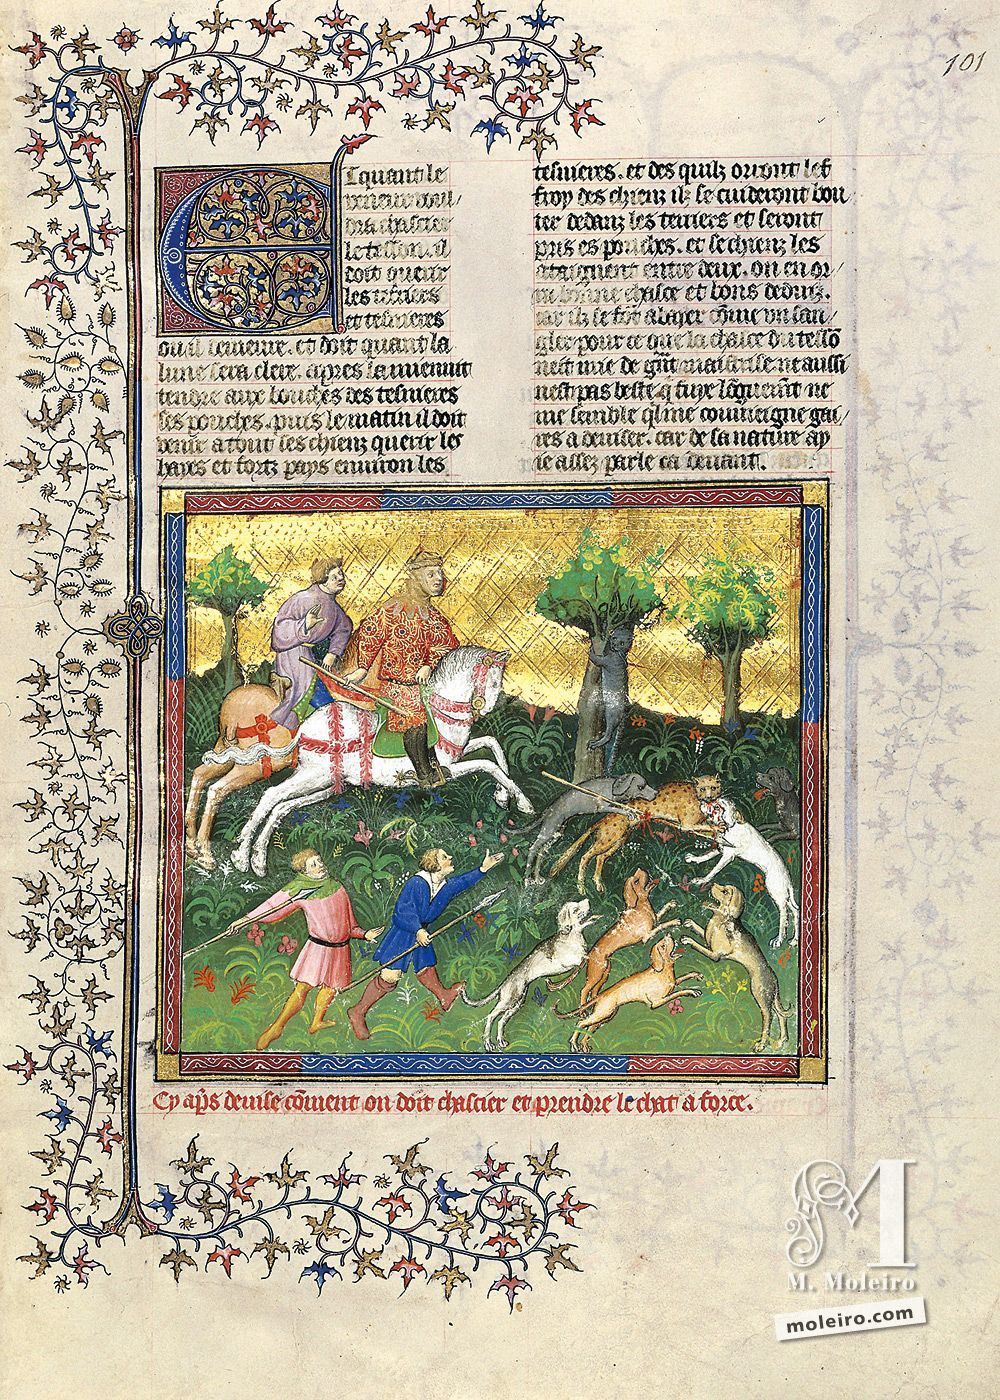 101
Et quant le
veneur voul/
dra chascier
le tesson. il
doit querir
les terriers
et tesnieres
ou il demeure. et doit quant la
lune sera clere. apres la mienuit
tendre aux bouches des tesnieres
ses pouches. puis le matin il doit
venir a tout ses chienz querir les
hayes et fortz pays environ les
tesnieres. et des quilz orront lef
froy des chienz ilz se cuideront bou/
ter dedanz les terriers et seront
pris es pouches. et se chienz les
ataignent entre deux. on en or/
ra bonne chasce et bons deduiz.
car ilz se font abayer cōme un san/
gler pour ce que la chasce du tessō
nest mie de grāt maistrise ne aussi
nest pas beste q̄ fuye lōguemt ne
me semble qͥl me convieigne gai/
res a deviser. car de sa nature ay
ie assez parle ca devant.
Cy ap̄s devise cōment on doit chascier et prendre le chat a force.
M
M. Moleiro
moleiro.com